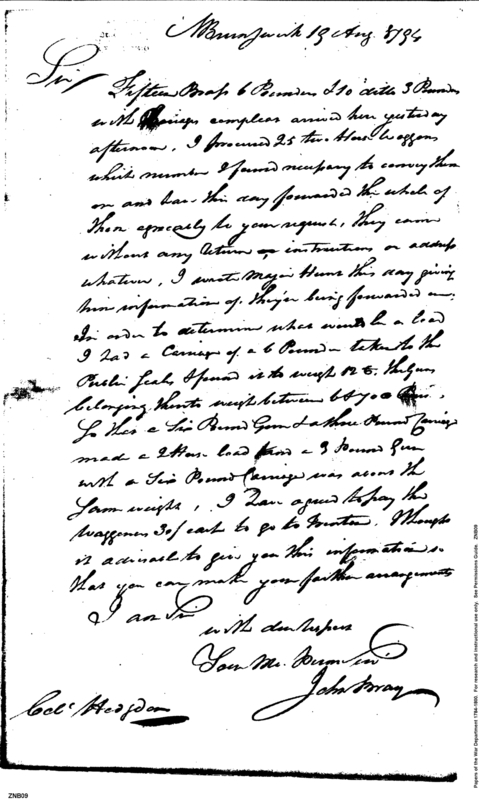 N Brunswick 19 Aug. 1794
Sir
Fifteen Brass 6 Pounders & 10 ditto 3 Pounders
with Carriages compleat arrived here yesterday
afternoon, I procured 25 two Horse Waggons
which number I found necessary to convey them
on and have this day forwarded the whole of
them agreeably to your request, they came
without any Return or instructions or address
whatever, I wrote Major Hunt this day giving
him information of their being forwarded on.
In order to determine what would be a load
I had a Carriage of a 6 Pounder taken to the
Public Scales & found it to weigh 828. the Guns
belonging thereto weigh between 6 & 700
So that a Six Pound Gun & a three Pound Carriage
made a 2 Horse load and a 3 Pound Gun
with a Six Pound Carriage was about the
same weight, I have agreed to pay the
waggoners 30/ each to go to Trenton. I thought
it adviseable to give you this information so
that you can make your farther arrangements
I am Sir
with due respect
Your Mo. Humb Sert
John Bray
Colo. Hodgdon
ZNB09
Papers of the War Department 1784-1800. For research and instructional use only. See Permissions Guide. ZNB09